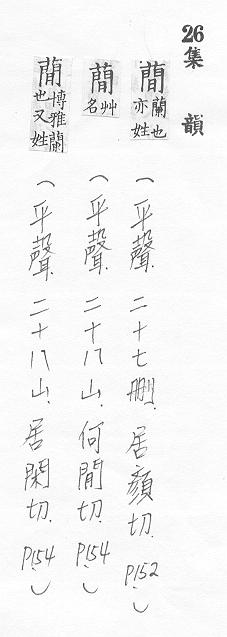 26 集韻
蕑 蘭也亦姓 (平聲. 二十七刪. 居顏切. P152.)
蕑 艸名 (平聲. 二十八山. 何間切. P154.)
蕑 博雅蘭也又姓 (平聲. 二十八山. 居閑切. P154.)